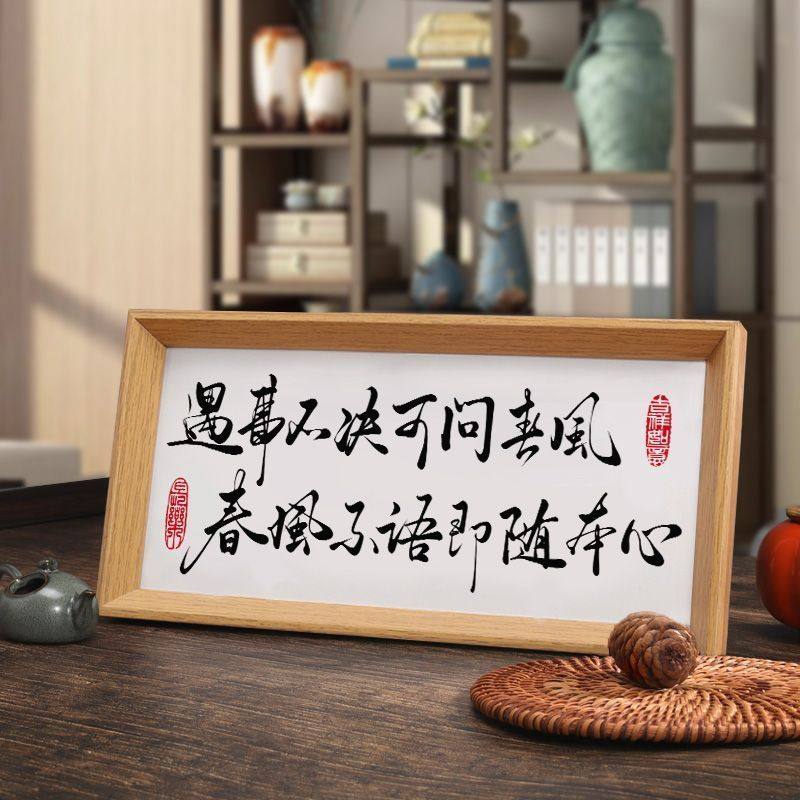 遇事不决可问春風
春風不语即随本心
吉祥如意